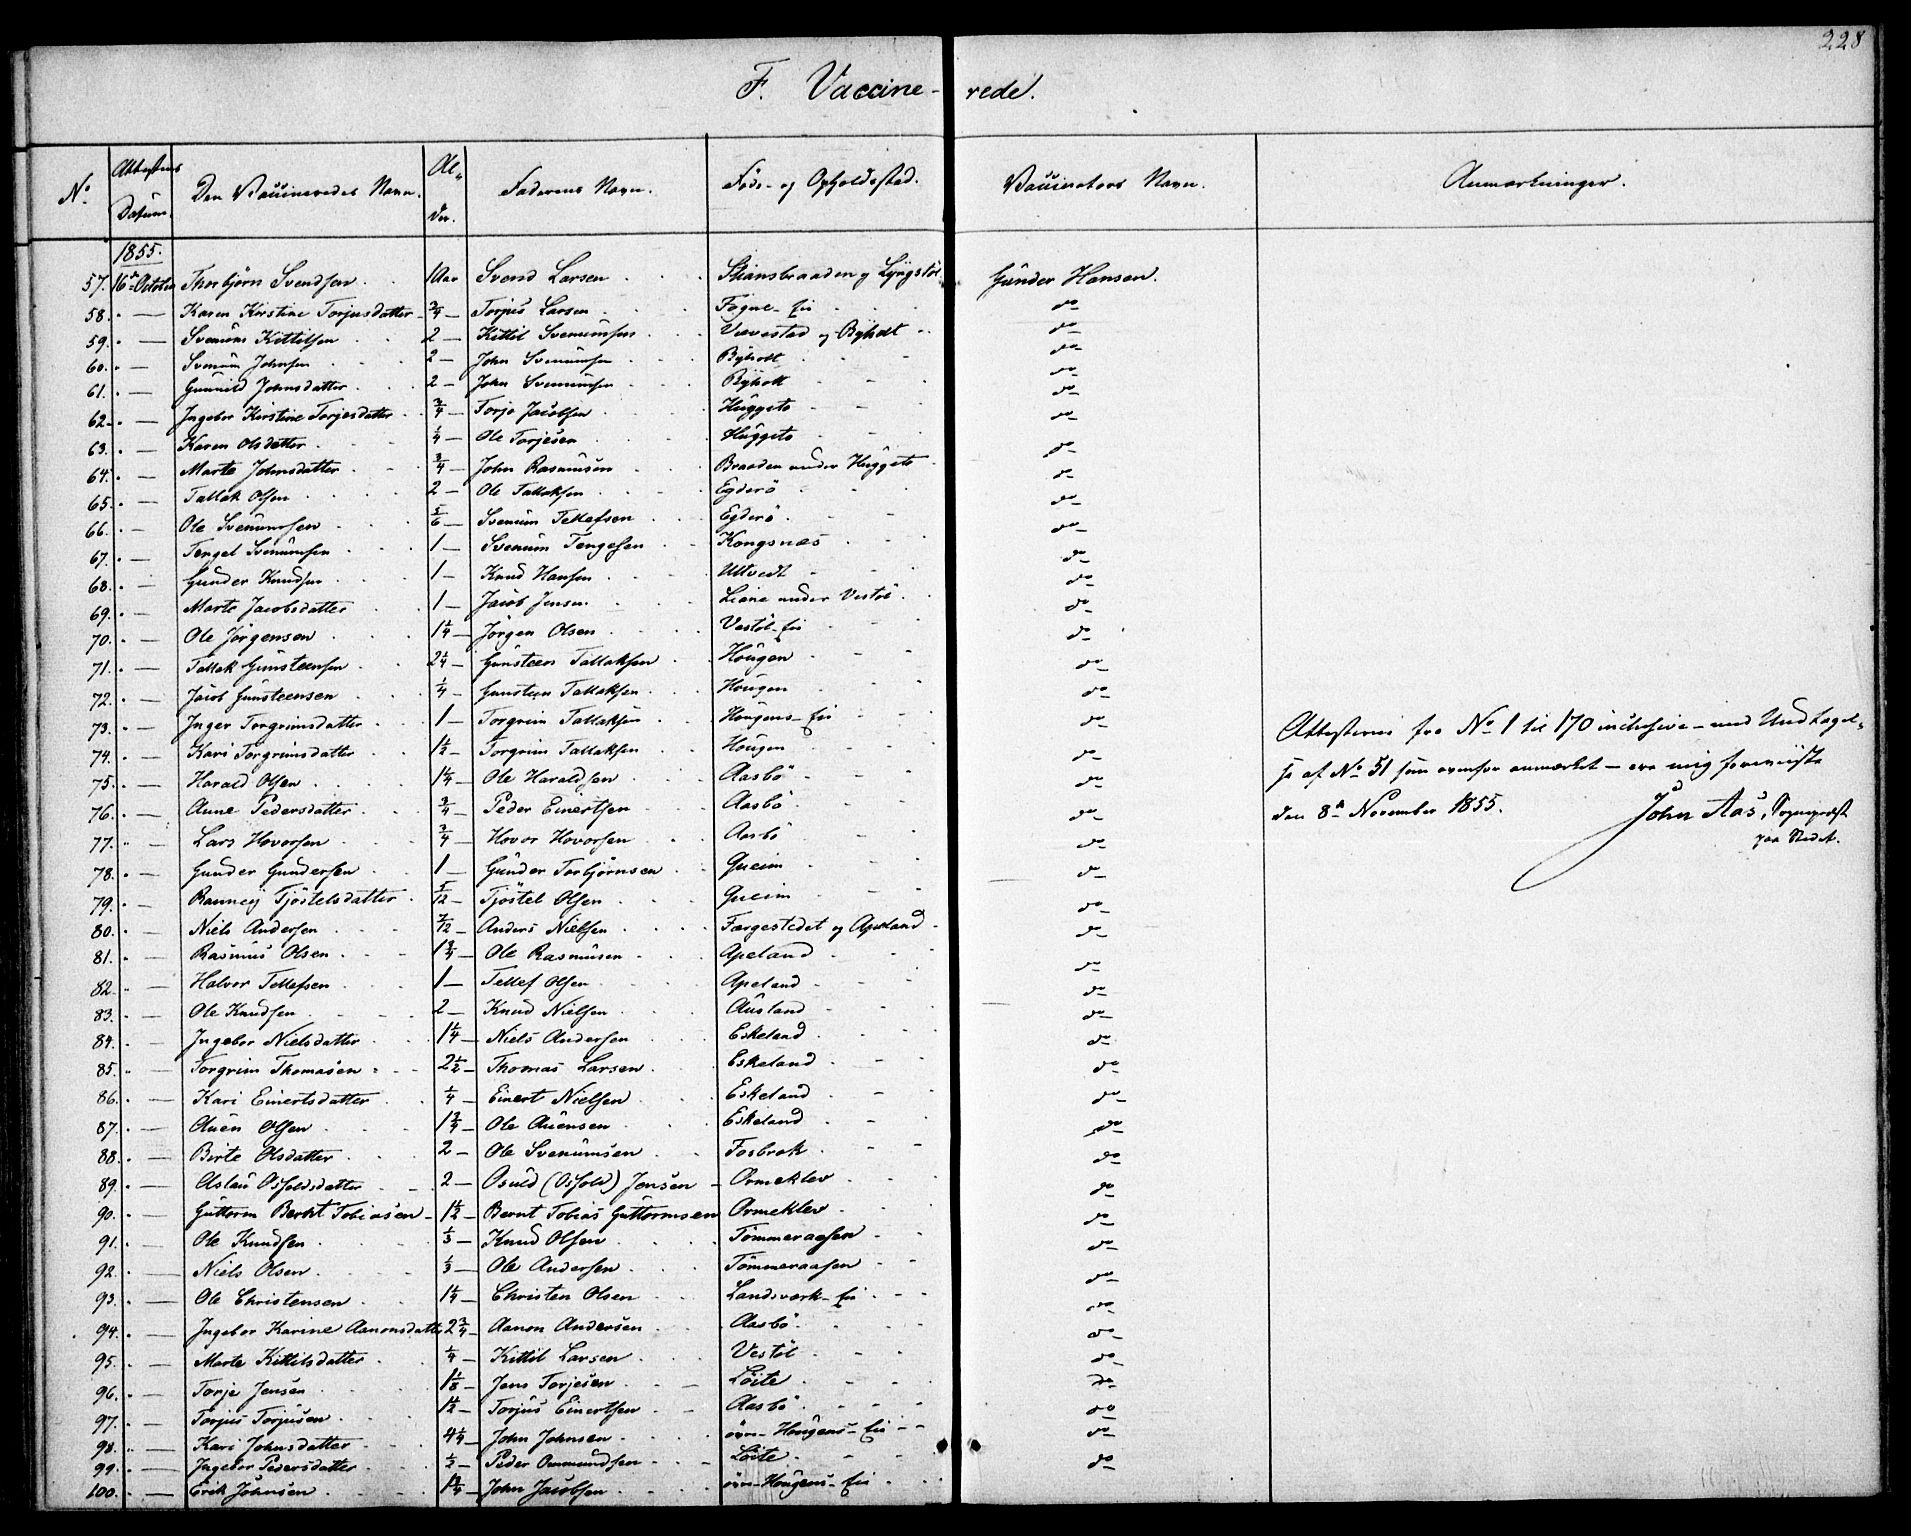 228
F. Vaccine-rede.
No. Attestens Datum. Den Vaccineredes Navn. Al-der. Faderens Navn. Føde- og Opholdssted. Vaccinators Navn. Anmærkninger.
1855.
57. 16de October Thorbjörn Svendsen 1 Aar Svend Larsen Skiansbraaden og Lyngstöl Günder Hansen.
58. " — Karen Kirstine Torjusdatter 3/4 — Torjus Larsen Fogne-Eie do
59. " — Svenum Kittilsen 2 — Kittil Svenumsen Vævestad og Byholt do
60. " — Svenum Johnsen 2 — John Svenumsen Byholt do
61. " — Gunnild Johnsdatter 2 — John Svenumsen Byholt do
62. " — Ingebor Kirstine Torjesdatter 3/4 — Torje Jacobsen Huggeto do
63. " — Karen Olsdatter 1/4 — Ole Torjesen Huggeto do
64. " — Marte Johnsdatter 3/4 — John Rasmusen Braaden under Huggeto do
65. " — Tallak Olsen 2 — Ole Tallaksen Egderö do
66. " — Ole Svenumsen 5/6 — Svenum Tellefsen Egderö do
67. " — Tengel Svenumsen 1 — Svenum Tengelsen Kongsnæs do
68. " — Günder Knudsen 1 — Knud Hansen Ulltvedt do
69. " — Marte Jacobsdatter 1 — Jacob Jensen Liane under Vestöl do
70. " — Ole Jörgensen 1 1/4 — Jörgen Olsen Vestöl-Eie do
71. " — Tallak Günsteensen 2 1/4 — Günsteen Tallaksen Hougen do
72. " — Jacob Gunsteensen 1/4 — Gunsteen Tallaksen Hougen do
73. " — Inger Torgrimsdatter 1 — Torgrim Tallaksen Hougens-Eie do
74. " — Kari Torgrimsdatter 1 1/2 — Torgrim Tallaksen Hougen do
75. " — Harald Olsen 1 1/4 — Ole Haraldsen Aasbö do
76. " — Anne Pedersdatter 3/4 — Peder Einertsen Aasbö do
77. " — Lars Hovorsen 3/4 — Hovor Hovorsen Aasbö do
78. " — Gunder Gundersen 1 — Günder Torbjörnsen Gueim do
79. " — Ranneij Tjöstelsdatter 5/12 — Tjöstel Olsen Gueim do
80. " — Niels Andersen 7/12 — Anders Nielsen Færgestedet og Apeland do
81. " — Rasmus Olsen 1 3/4 — Ole Rasmusen Apeland do
82. " — Halvor Tellefsen 1 — Tellef Olsen Apeland do
83. " — Ole Knudsen 2 — Knud Nielsen Austand do
84. " — Ingebor Nielsdatter 1 1/4 — Niels Andersen Eskeland do
85. " — Torgrim Thomasen 2 1/2 — Thomas Larsen Eskeland do
86. " — Kari Einertsdatter 1/4 — Einert Nielsen Eskeland do
87. " — Auen Olsen 1 3/4 — Ole Auensen Eskeland do
88. " — Birte Olsdatter 2 — Ole Svenumsen Fosbrok do
89. " — Aslau Osfoldsdatter 2 — Osuld (Osfold) Jensen Ormeklev do
90. " — Guttorm Bernt Tobiasen 1 1/2 — Bernt Tobias Guttormsen Ormeklev do
91. " — Ole Knudsen 1/3 — Knud Olsen Tömmeraasen do
92. " — Niels Olsen 1/3 — Ole Andersen Tömmeraasen do
93. " — Ole Christensen 1 1/4 — Christen Olsen Landsværk-Eie do
94. " — Ingebor Karine Aanonsdatter 2 3/4 — Aanon Andersen Aasbö do
95. " — Marte Kittilsdatter 1/4 — Kittil Larsen Vestöl do
96. " — Torje Jensen 1 1/8 — Jens Torjesen Löite do
97. " — Torjus Torjusen 1 1/2 — Torjus Einertsen Aasbö do
98. " — Kari Johnsdatter 4 1/4 — John Johnsen övre-Hougens-Eie do
99. " — Ingebor Pedersdatter 1/2 — Peder Ommundsen Löite do
100. " — Erik Johnsen 1 3/4 — John Jacobsen övre-Hougens-Eie
Attesterne fra No 1 til 170 inclusive — med Undtagel-
se af No 51 som ovenfor anmærket — ere mig foreviiste
den 8de November 1855. John Aas, Sognepræst
paa Stedet.